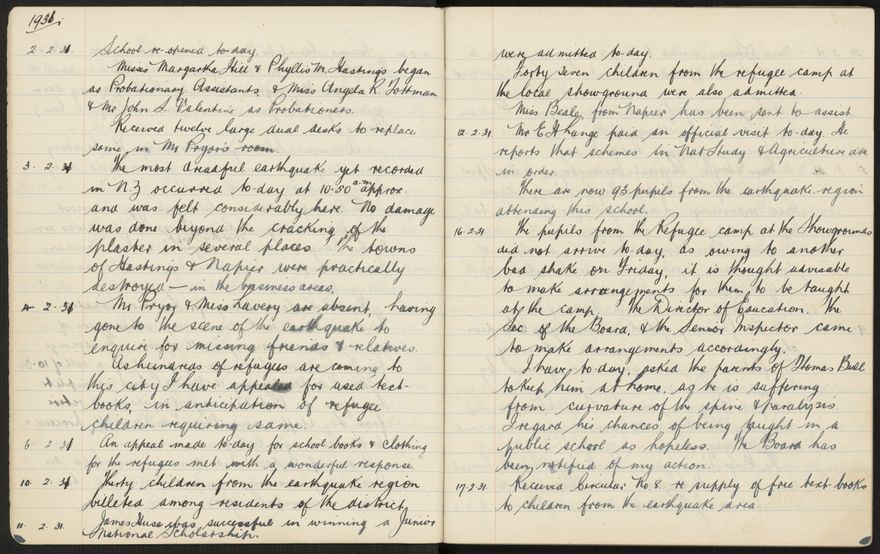 1931.
2. 2. 31. School re-opened to-day.
Misses Margaretta Hill & Phyllis M. Hastings began
as Probationary Assistants & Miss Angela R. Tottman
& Mr John S. Valentine as Probationers.
Received twelve large dual desks to replace
some in Mr Pryor's room.
3. 2. 31 The most dreadful earthquake yet recorded
in N.Z occurred to-day at 10.50 a.m. approx.
and was felt considerably here. No damage
was done beyond the cracking of the
plaster in several places. The towns
of Hastings & Napier were practically
destroyed - in the business areas.
4. 2. 31 Mr Pryor & Miss Lavery are absent, having
gone to the scene of the earthquake to
enquire for missing friends & relatives.
As hundreds of refugees are coming to
this city I have appealed for used text-
books, in anticipation of refugee
children requiring same.
6. 2. 31 An appeal made to-day for school books & clothing
for the refugees met with a wonderful response.
10. 2. 31 Thirty children from the earthquake region
billeted among residents of the district
11. 2. 31. James Huse was successful in winning a Junior
National Scholarship.
were admitted to-day.
Forty seven children from the refugee camp at
the local showground were also admitted.
Miss Bealey, from Napier has been sent to assist.
12. 2. 31. Mr E. H. Lange paid an official visit to-day. He
reports that schemes in Nat Study & Agriculture are
in order.
There are now 93 pupils from the earthquake region
attending this school.
16. 2. 31. The pupils from the Refugee camp at the Showgrounds
did not arrive to-day, as owing to another
bad shake on Friday, it is thought advisable
to make arrangements for them to be taught
at the camp. The Director of Education. The
Sec of the Board, & the Senior Inspector came
to make arrangements accordingly.
I have, to-day, asked the parents of Thomas Bull
to keep him at home, as he is suffering
from curvature of the spine & paralysis.
I regard his chances of being taught in a
public school as hopeless. The Board has
been notified of my action.
17. 2. 31. Received Circular No 8. re supply of free text-books
to children from the earthquake area.